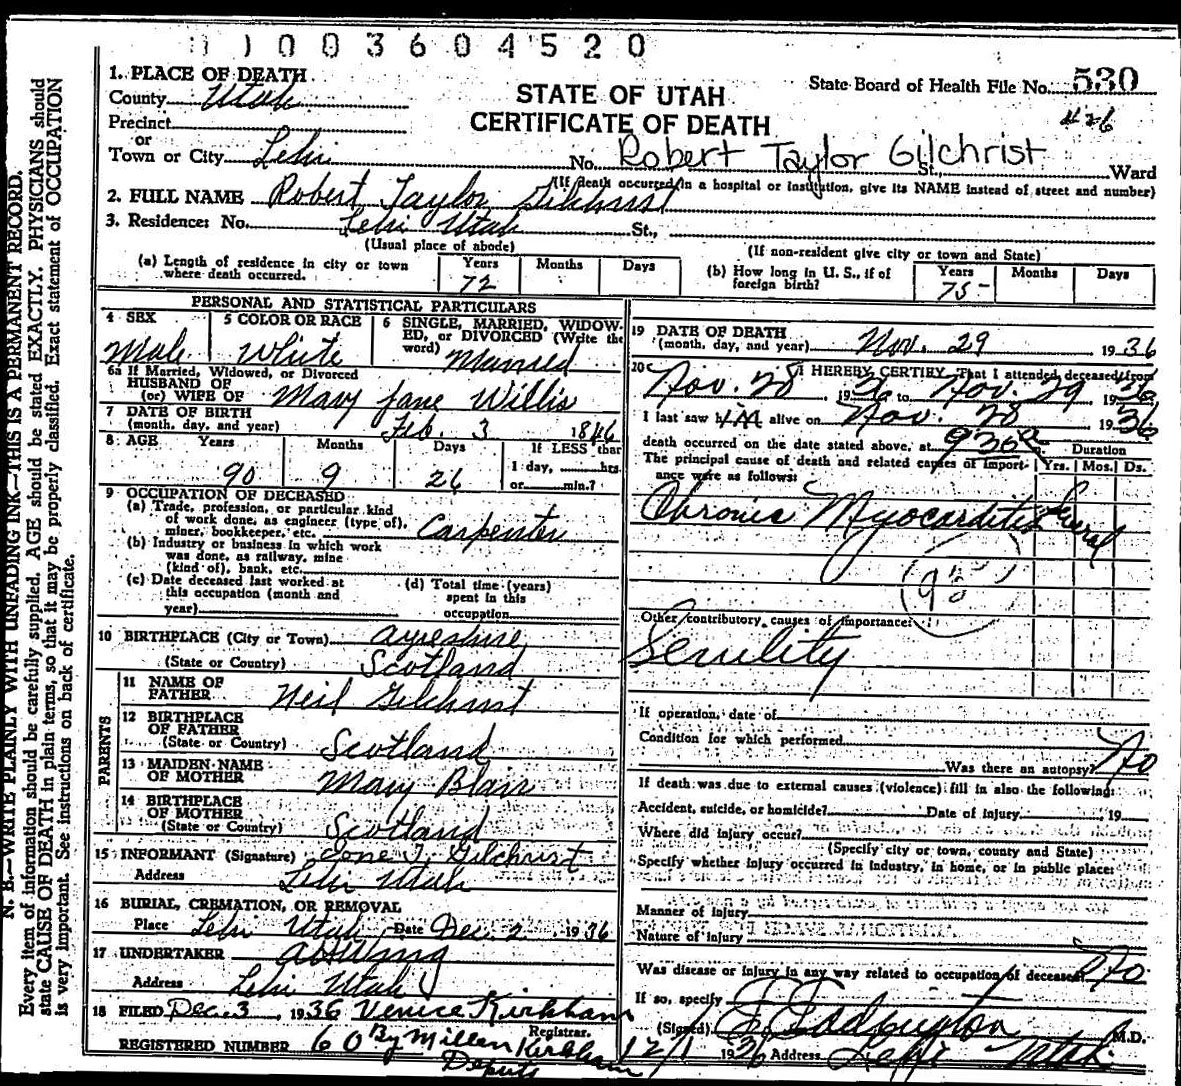 0 0 3 6 0 4 5 2 0
1. PLACE OF DEATH
County Utah
Precinct
or
Town or City Lehi
STATE OF UTAH
CERTIFICATE OF DEATH
State Board of Health File No. 530
426
No. Robert Taylor Gilchrist St., Ward
(If death occurred in a hospital or institution, give its NAME instead of street and number)
2. FULL NAME Robert Taylor Gilchrist
3. Residences: No. Lehi Utah St.,
(Usual place of abode) (If non-resident give city or town and State)
(a) Length of residence in city or town where death occurred. Years 72 Months Days
(b) How long in U. S., if of foreign birth? Years 75 - Months Days
PERSONAL AND STATISTICAL PARTICULARS
4 SEX Male
5 COLOR OR RACE White
6 SINGLE, MARRIED, WIDOWED, or DIVORCED (Write the word) Married
6a If Married, Widowed, or Divorced
HUSBAND OF
(or) WIFE OF Mary Jane Willis
7 DATE OF BIRTH
(month, day, and year) Feb. 3 1846
8 AGE Years 90 Months 9 Days 26 If LESS than 1 day, hrs. or min.?
9 OCCUPATION OF DECEASED
(a) Trade, profession, or particular kind of work done, as engineer (type of), miner, bookkeeper, etc. Carpenter
(b) Industry or business in which work was done, as railway, mine (kind of), bank, etc.
(c) Date deceased last worked at this occupation (month and year)
(d) Total time (years) spent in this occupation
10 BIRTHPLACE (City or Town) Ayreshire
(State or Country) Scotland
PARENTS
11 NAME OF FATHER Neil Gilchrist
12 BIRTHPLACE OF FATHER
(State or Country) Scotland
13 MAIDEN NAME OF MOTHER Mary Blair
14 BIRTHPLACE OF MOTHER
(State or Country) Scotland
15 INFORMANT (Signature) Gilchrist
Address Lehi Utah
16 BURIAL, CREMATION, OR REMOVAL
Place Lehi Utah Date Dec. 2 1936
17 UNDERTAKER
Address Lehi Utah
18 FILED Dec. 3 1936 Venice Kirkham
Registrar.
REGISTERED NUMBER 60 By Millen Kirkham
Deputy
19 DATE OF DEATH
(month, day, and year) Nov. 29 1936
20 I HEREBY CERTIFY, That I attended deceased from
Nov. 28 1936 to Nov. 29 1936
I last saw him alive on Nov. 28 1936
death occurred on the date stated above, at 930 a
Duration
The principal cause of death and related causes of importance were as follows: Yrs. Mos. Ds.
Chronic Myocarditis Several
Other contributory causes of importance:
Senility
If operation, date of
Condition for which performed
Was there an autopsy? No
If death was due to external causes (violence) fill in also the following:
Accident, suicide, or homicide? Date of injury 19
Where did injury occur?
(Specify city or town, county and State)
Specify whether injury occurred in industry, in home, or in public place:
Manner of injury
Nature of injury
Was disease or injury in any way related to occupation of deceased? No
If so, specify
(Signed) Eddington M.D.
12/1 1936 Address Lehi Utah
N. B.—WRITE PLAINLY WITH UNFADING INK—THIS IS A PERMANENT RECORD.
Every item of information should be carefully supplied. AGE should be stated EXACTLY. PHYSICIANS should
state CAUSE OF DEATH in plain terms, so that it may be properly classified. Exact statement of OCCUPATION
is very important. See instructions on back of certificate.